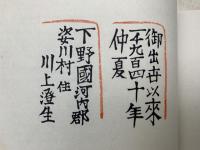 御出世以來
一千九百四十年
仲夏
下野國河内郡
姿川村 住
川上澄生